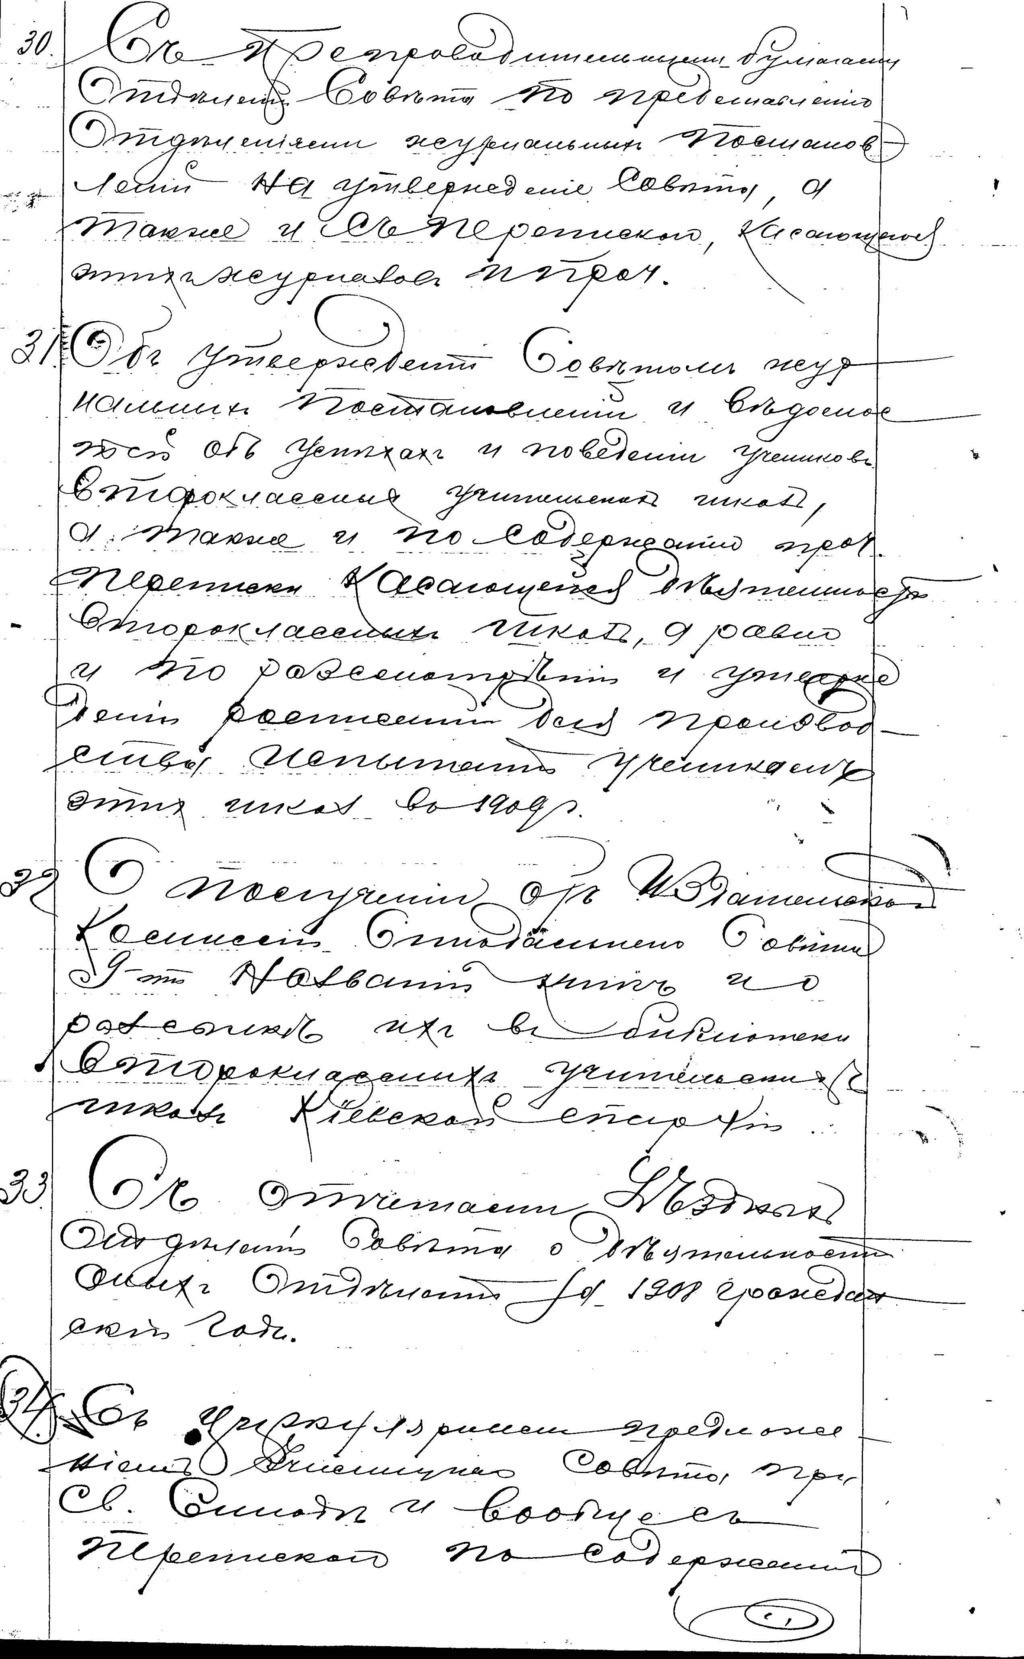 30. Съ препроводительными бумагами
Отдѣленій Совѣта по представленію
Отдѣленіями журнальныхъ постанов
леній на утвержденіе Совѣта, а
также и съ перепиской, касающейся
этихъ журналовъ и проч.
31. Объ утвержденіи Совѣтомъ жур
нальныхъ постановленій и вѣдомос
тей объ успѣхахъ и поведеніи учениковъ
второклассныхъ учительскихъ школъ,
а также и по содержанію проч.
переписки касающейся дѣятельности
второклассныхъ школъ, а равно
и по разсмотрѣнію и утверж
денію росписаній для производ
ства испытаній ученикамъ
этихъ школъ въ 1909 г.
32 О полученіи отъ Издательской
Коммиссіи Синодальнаго Совѣта
9-ти названій книгъ и о
разсылкѣ ихъ въ библіотеки
второклассныхъ учительскихъ
школъ Кіевской епархіи
33. Съ отчетами Уѣздныхъ
Отдѣленій Совѣта о дѣятельности
оныхъ Отдѣленій за 1908 граждан
скій годъ.
34. Съ циркулярными предложе
ніями Училищнаго Совѣта при
Св. Синодѣ и вообще съ
перепиской по содержанію